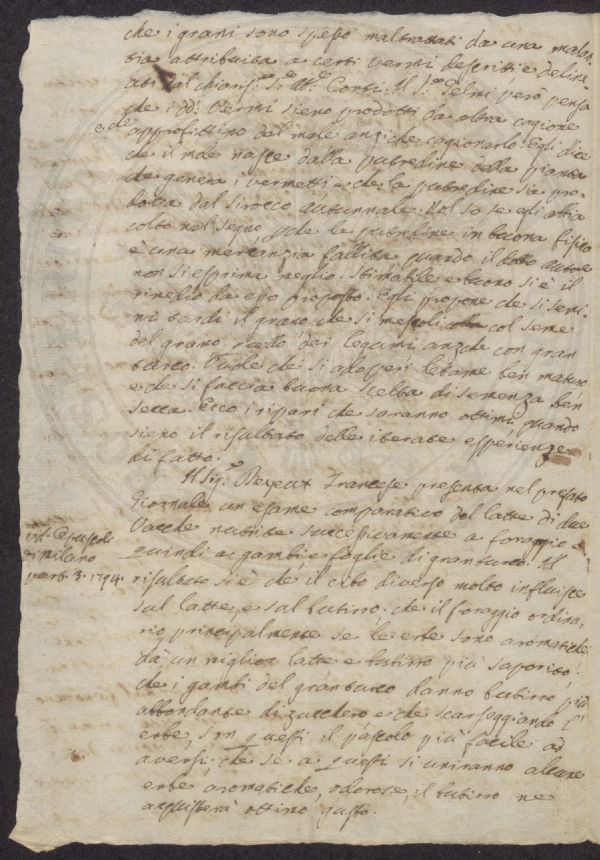 che i grani sono spesso maltrattati da una malat
tia attribuita a certi vermi descritti e deline
ati dal chiariss.º S.r Ab.e Conti. Il S.r Selmi però pensa
che i dd.i Vermi sieno prodotti da altra cagione
e che approfittino del male anzi che cagionarlo. Egli dice
che il male nasce dalla putredine della pianta
che genera i vermetti e che la putredine sia pro
dotta dal sirocco autunnale. Nol so se egli abbia
colto nel segno, che la putredine in buona fisica
è una mercanzia fallita quando il dotto autore
non si esprima meglio. Stimabile e buono si è il
rimedio da esso proposto. Egli propone che si semi
ni tardi il grano che si mescoli col seme
del grano quello dei legumi anzi che con gran
turco. Vuole che si adopperi letame ben maturo,
e che si faccia buona scelta di semenza ben
secca. Ecco i ripari che saranno ottimi, quando
sieno il risultato delle iterate esperienze
di fatto.
Il Sig.r Francese presenta nel presato
Giornale un esame comparativo del latte di due
Vacche nutrite successivamente a foraggio e
quindi a gambi e foglie di granturco. Il
vid. Opuscoli
di Milano
part. 3. 1794.
risultato si è che il cibo diverso molto influisce
sul latte, e sul butirro; che il foraggio ordina
rio, principalmente se le erbe sono aromatiche
dà un miglior latte e butirro più saporito;
che i gambi del granturco danno butirro più
abbondante di zucchero e che scarseggiando l'
erbe, son questi il pascolo più facile ad
aversi: che se a questi si uniranno alcune
erbe aromatiche, odorose, il butirro ne
acquisterà ottimo gusto.